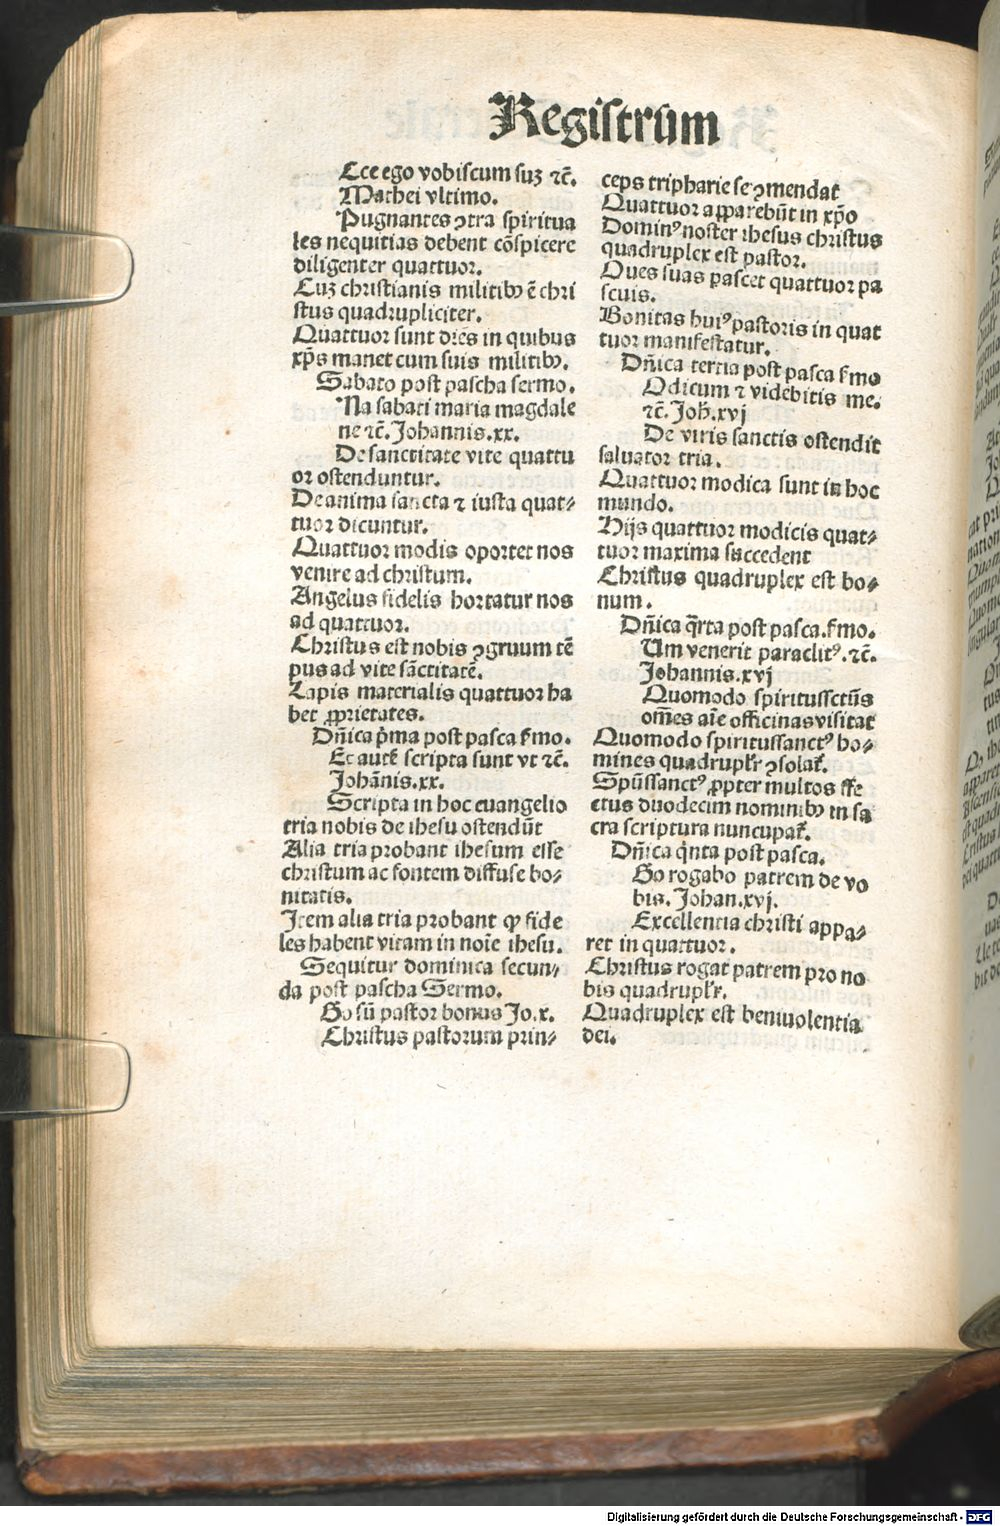 Registrum
Cce ego vobiscum suꝫ ⁊c̃.
Mathei vltimo.
Pugnantes ꝯtra spiritua
les nequitias debent cõspicere
diligenter quattuor.
Cuꝫ christianis militibꝰ ẽ chri
stus quadrupliciter.
Quattuor sunt diẽs in quibus
xp̃s manet cum suis militibꝰ.
Sabato post pascha sermo.
Na sabati maria magdale
ne ⁊c̃. Johannis.xx.
De sanctitate vite quattu
or ostenduntur.
De anima sancta ⁊ iusta quat⸗
tuor dicuntur.
Quattuor modis oportet nos
venire ad christum.
Angelus fidelis hortatur nos
ad quattuor.
Christus est nobis ꝯgruum tẽ
pus ad vite sãctitatẽ.
Lapis materialis quattuor ha
bet ꝓprietates.
Dñica p̃ma post pasca s̃mo.
Et autẽ scripta sunt vt ⁊c̃.
Johãnis.xx.
Scripta in hoc euangelio
tria nobis de ihesu ostendũt
Alia tria probant ihesum esse
christum ac fontem diffuse bo⸗
nitatis.
Item alia tria probant ꝙ fide
les habent vitam in noĩe ihesu.
Sequitur dominica secun⸗
da post pascha Sermo.
Go sũ pastor bonus Jo.x.
Christus pastorum prin⸗
ceps tripharie se ꝯmendat
Quattuor apparebũt in xp̃o
Dominꝰ noster ihesus christus
quadruplex est pastor.
Oues suas pascet quattuor pa
scuis.
Bonitas huiꝰ pastoris in quat
tuor manifestatur.
Dñica tertia post pasca s̃mo
Odicum ⁊ videbitis me.
⁊c̃. Joh̃.xvj
De viris sanctis ostendit
saluator tria.
Quattuor modica sunt in hoc
mundo.
Hijs quattuor modicis quat⸗
tuor maxima succedent
Christus quadruplex est bo⸗
num.
Dñica q̃rta post pasca.s̃mo.
Um venerit paraclitꝰ.⁊c̃.
Johannis.xvj
Quomodo spiritussctũs
om̃es aĩe officinas visitat
Quomodo spiritussanctꝰ ho⸗
mines quadruplr̃ ꝯsolat̃.
Spũssanctꝰ ꝓpter multos effe
ctus duodecim nominibꝰ in sa
cra scriptura nuncupat̃.
Dñica q̃nta post pasca.
Go rogabo patrem de vo
bis. Johan.xvj.
Excellentia christi appa⸗
ret in quattuor.
Christus rogat patrem pro no
bis quadruplr̃.
Quadruplex est beniuolentia
dei.
Digitalisierung gefördert durch die Deutsche Forschungsgemeinschaft - DFG